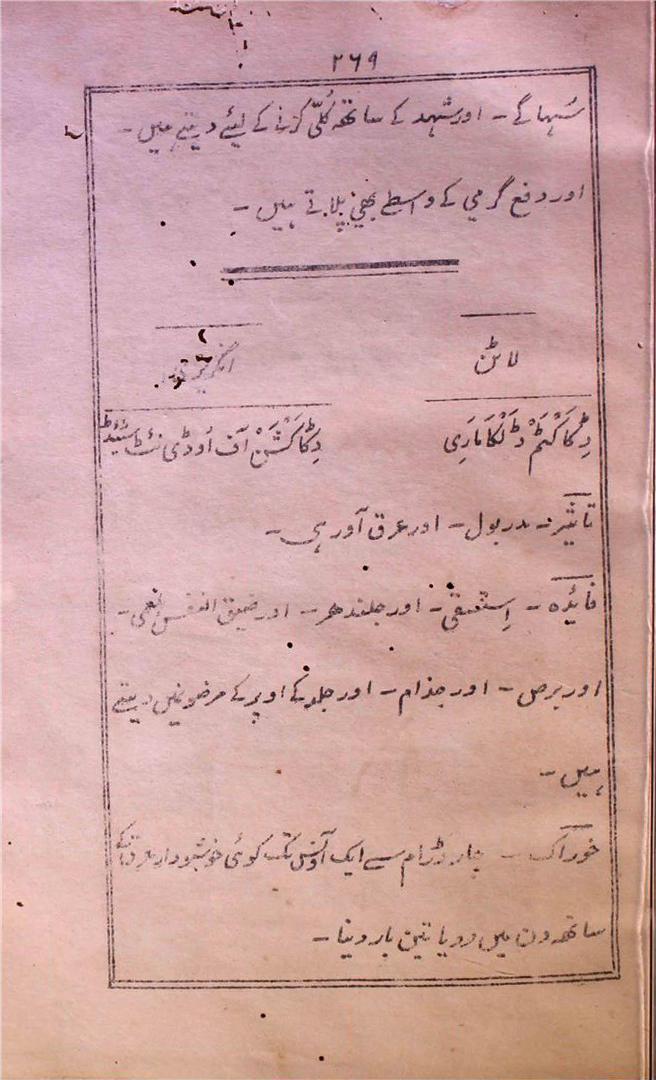 ۲۶۹
سُہاگے - اور شہد کے ساتھ کُلّی کرنے کے لیٔے دیتے ہیں -
اور دفع گرمی کے واسطے بھی پلاتے ہیں -
لاٹن
انگریزی
ڈِکاکْٹَمْ ڈَلْکَامَارَی
ڈِکَاکْشَنْ آف اَوڈی نَٹ سُئِیٹ
تاثیر - مدر بول - اور عرق آور ہی -
فائدہ - اِستسقی - اور جلندھر - اور ضیق النفس بلغمی -
اور برص - اور جذام - اور جلد کے اوپر کے مرضونمیں دیتے
ہیں -
خوراک - چار ڈرام سے ایک آونس تک کوئی خوشبودار عرق کے
ساتھ دن میں دو یا تین بار دینا -